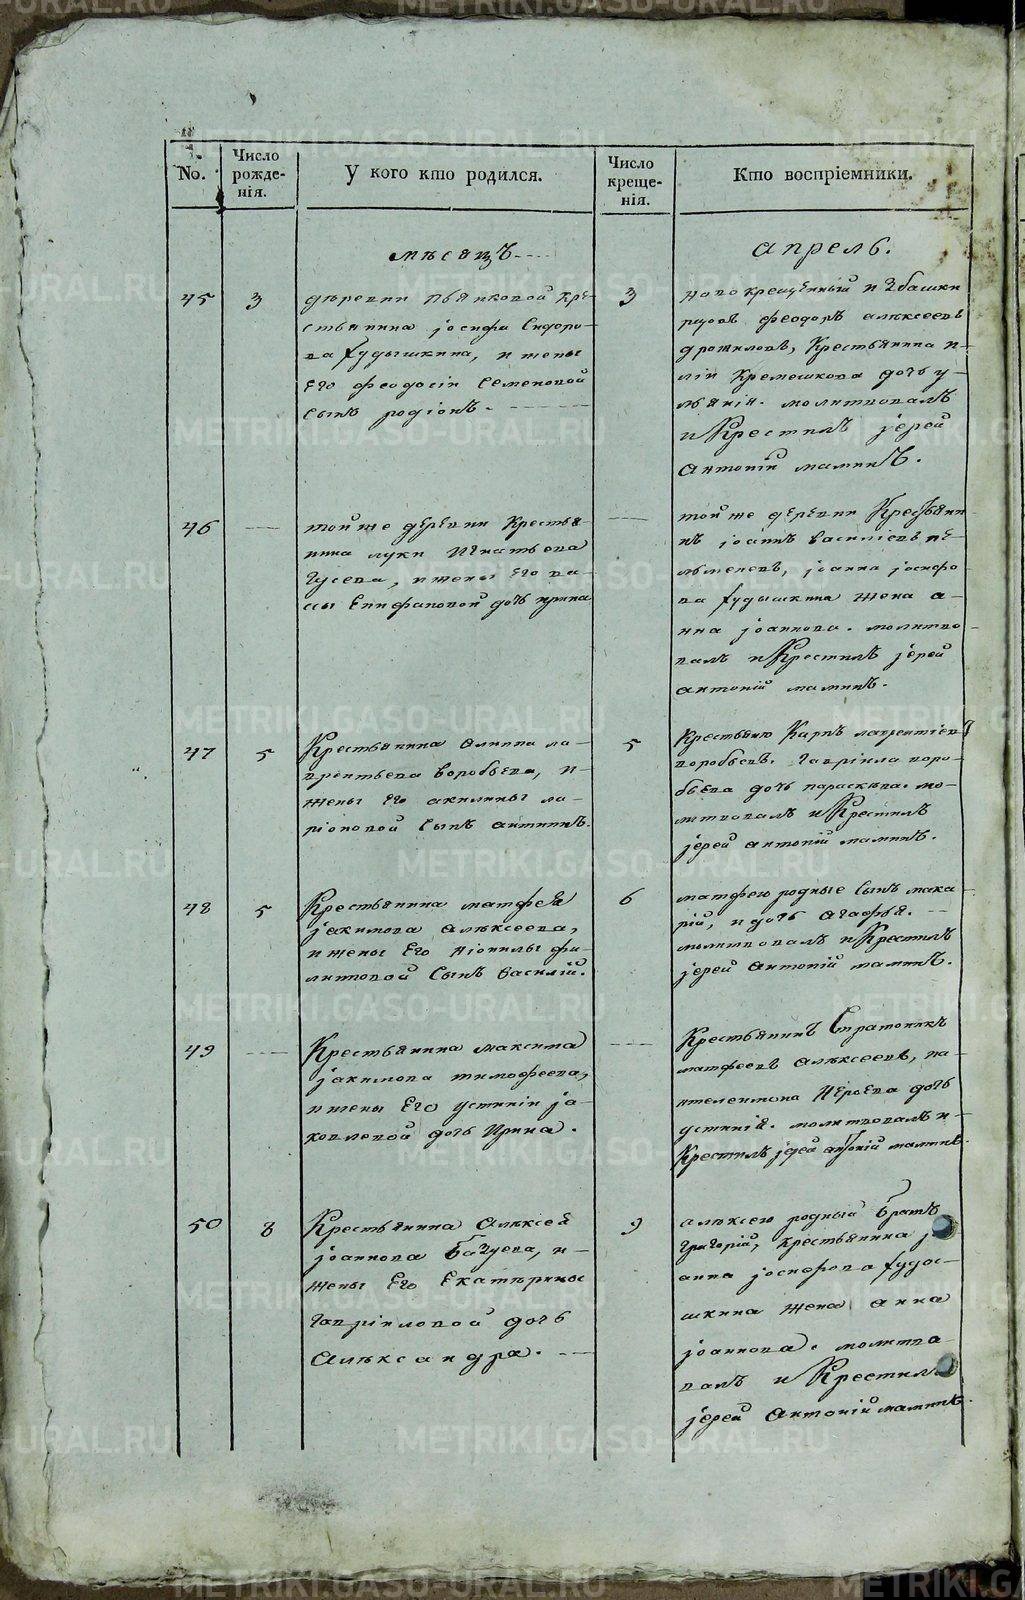 No.
Число рожде-нія.
У кого кто родился.
Число креще-нія.
Кто воспріемники.
мѣсяцъ
апрель.
45
3
деревни Пьянковой кре-
стьянина іосифа Сидоро-
ва худышкина, и жены
его феодосіи Семеновой
сынъ родіонъ.
3
новокрещенный изъ башки
рцовъ феодоръ алѣксеевъ
, крестьянина и-
ліи Кремешкова дочь у-
льянія. молитвовалъ
и Крестилъ іерей
Антоній маминъ.
46
тойже деревни Крестья-
нина луки Игнатьева
Гусева, и жены его ва-
сы Епифановой дочь ирина
тойже деревни Крестьяни-
нъ іоаннъ василіевъ пе-
льменевъ, іоанна іосифо-
ва худышкина жена а-
нна іоаннова. молитво-
валъ и Крестилъ іерей
антоній маминъ.
47
5
Крестьянина Филиппа ла-
врентьева воробьева, и
жены его акилины ла-
ріоновой сынъ антипъ.
5
Крестьяно Карпъ лаврентіевъ
воробьевъ. гавріила воро-
бьева дочь параскева. мо-
литвовалъ и Крестилъ
іерей антоній маминъ.
48
5
Крестьянина матфея
іакимова Алѣксеева,
и жены его Неонилы фи-
липовой сынъ василій.
6
матфею родные сынъ мака-
рій, и дочь агафья.
молитвовалъ и Крестилъ
іерей антоній маминъ.
49
Крестьянина максима
іакимова тимофеева,
и жены его устиніи іа-
ковлевой дочь Ирина.
Крестьянинъ Стратоникъ
матфеевъ Алѣксеевъ, па-
нтелеимона дочь
устинія. молитвовалъ и
Крестилъ іерей антоній маминъ
50
8
Крестьянина Алѣксея
іоаннова Бачуева, и
жены его Екатѣрины
гавріиловой дочь
Алѣксандра.
9
алѣксею родный братъ
григорій, крестьянина і
анна іосифова худы-
шкина жена анна
іоаннова. молитво
валъ и Крестилъ
іерей Антоній маминъ.
METRIKI.GASO-URAL.RU